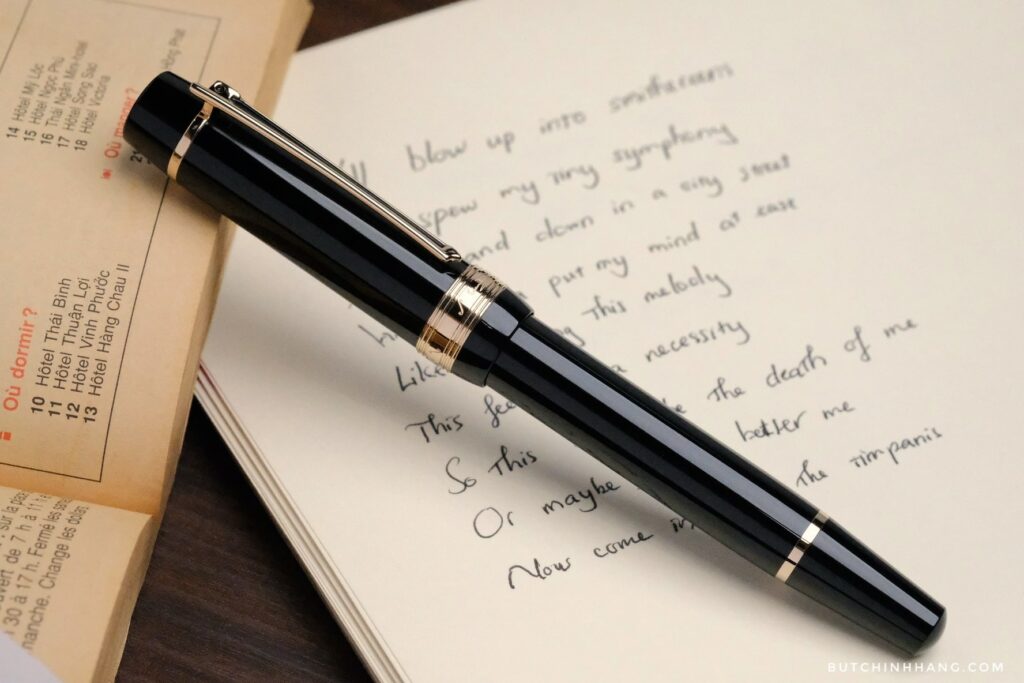 14 Hôtel Mỹ Lộc
15 Hôtel Ngọc Phú
16 Thái Ngân Mini-hotel
17 Hôtel Song Sao
18 Hôtel Victoria
Où manger?
21
Où dormir?
10 Hôtel Thái Bình
11 Hôtel Thuận Lợi
12 Hôtel Vinh Phước
13 Hôtel Hàng Chau II
sur la
de 7 h à 11 h
30 à 17 h. Fermé les
manche. Change les dollars
blow up into smithereens
spew my tiny symphony
and down in a city street
put my mind at ease
this melody
Like a necessity
This the death of me
So this better me
Or maybe the timpanis
Now come in
BUTCHINHHANG.COM